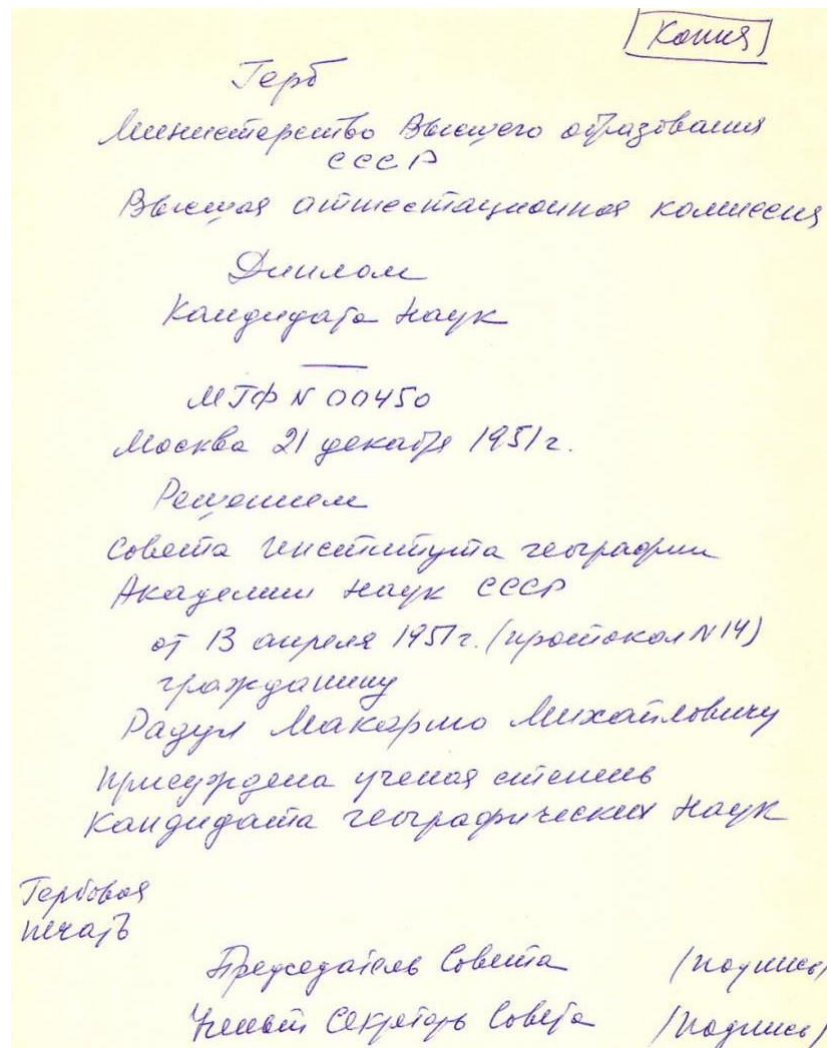 Копия
Герб
Министерство Высшего образования
СССР
Высшая аттестационная комиссия
Диплом
Кандидата Наук
МГФ N 00450
Москва 21 декабря 1951г.
Решением
Совета Института географии
Академии Наук СССР
от 13 апреля 1951г. (протокол N14)
гражданину
Радул Макарию Михайловичу
Присуждена ученая степень
Кандидата географических Наук
Гербовая
печать
Председатель Совета /подпись/
Ученый Секретарь Совета /подпись/